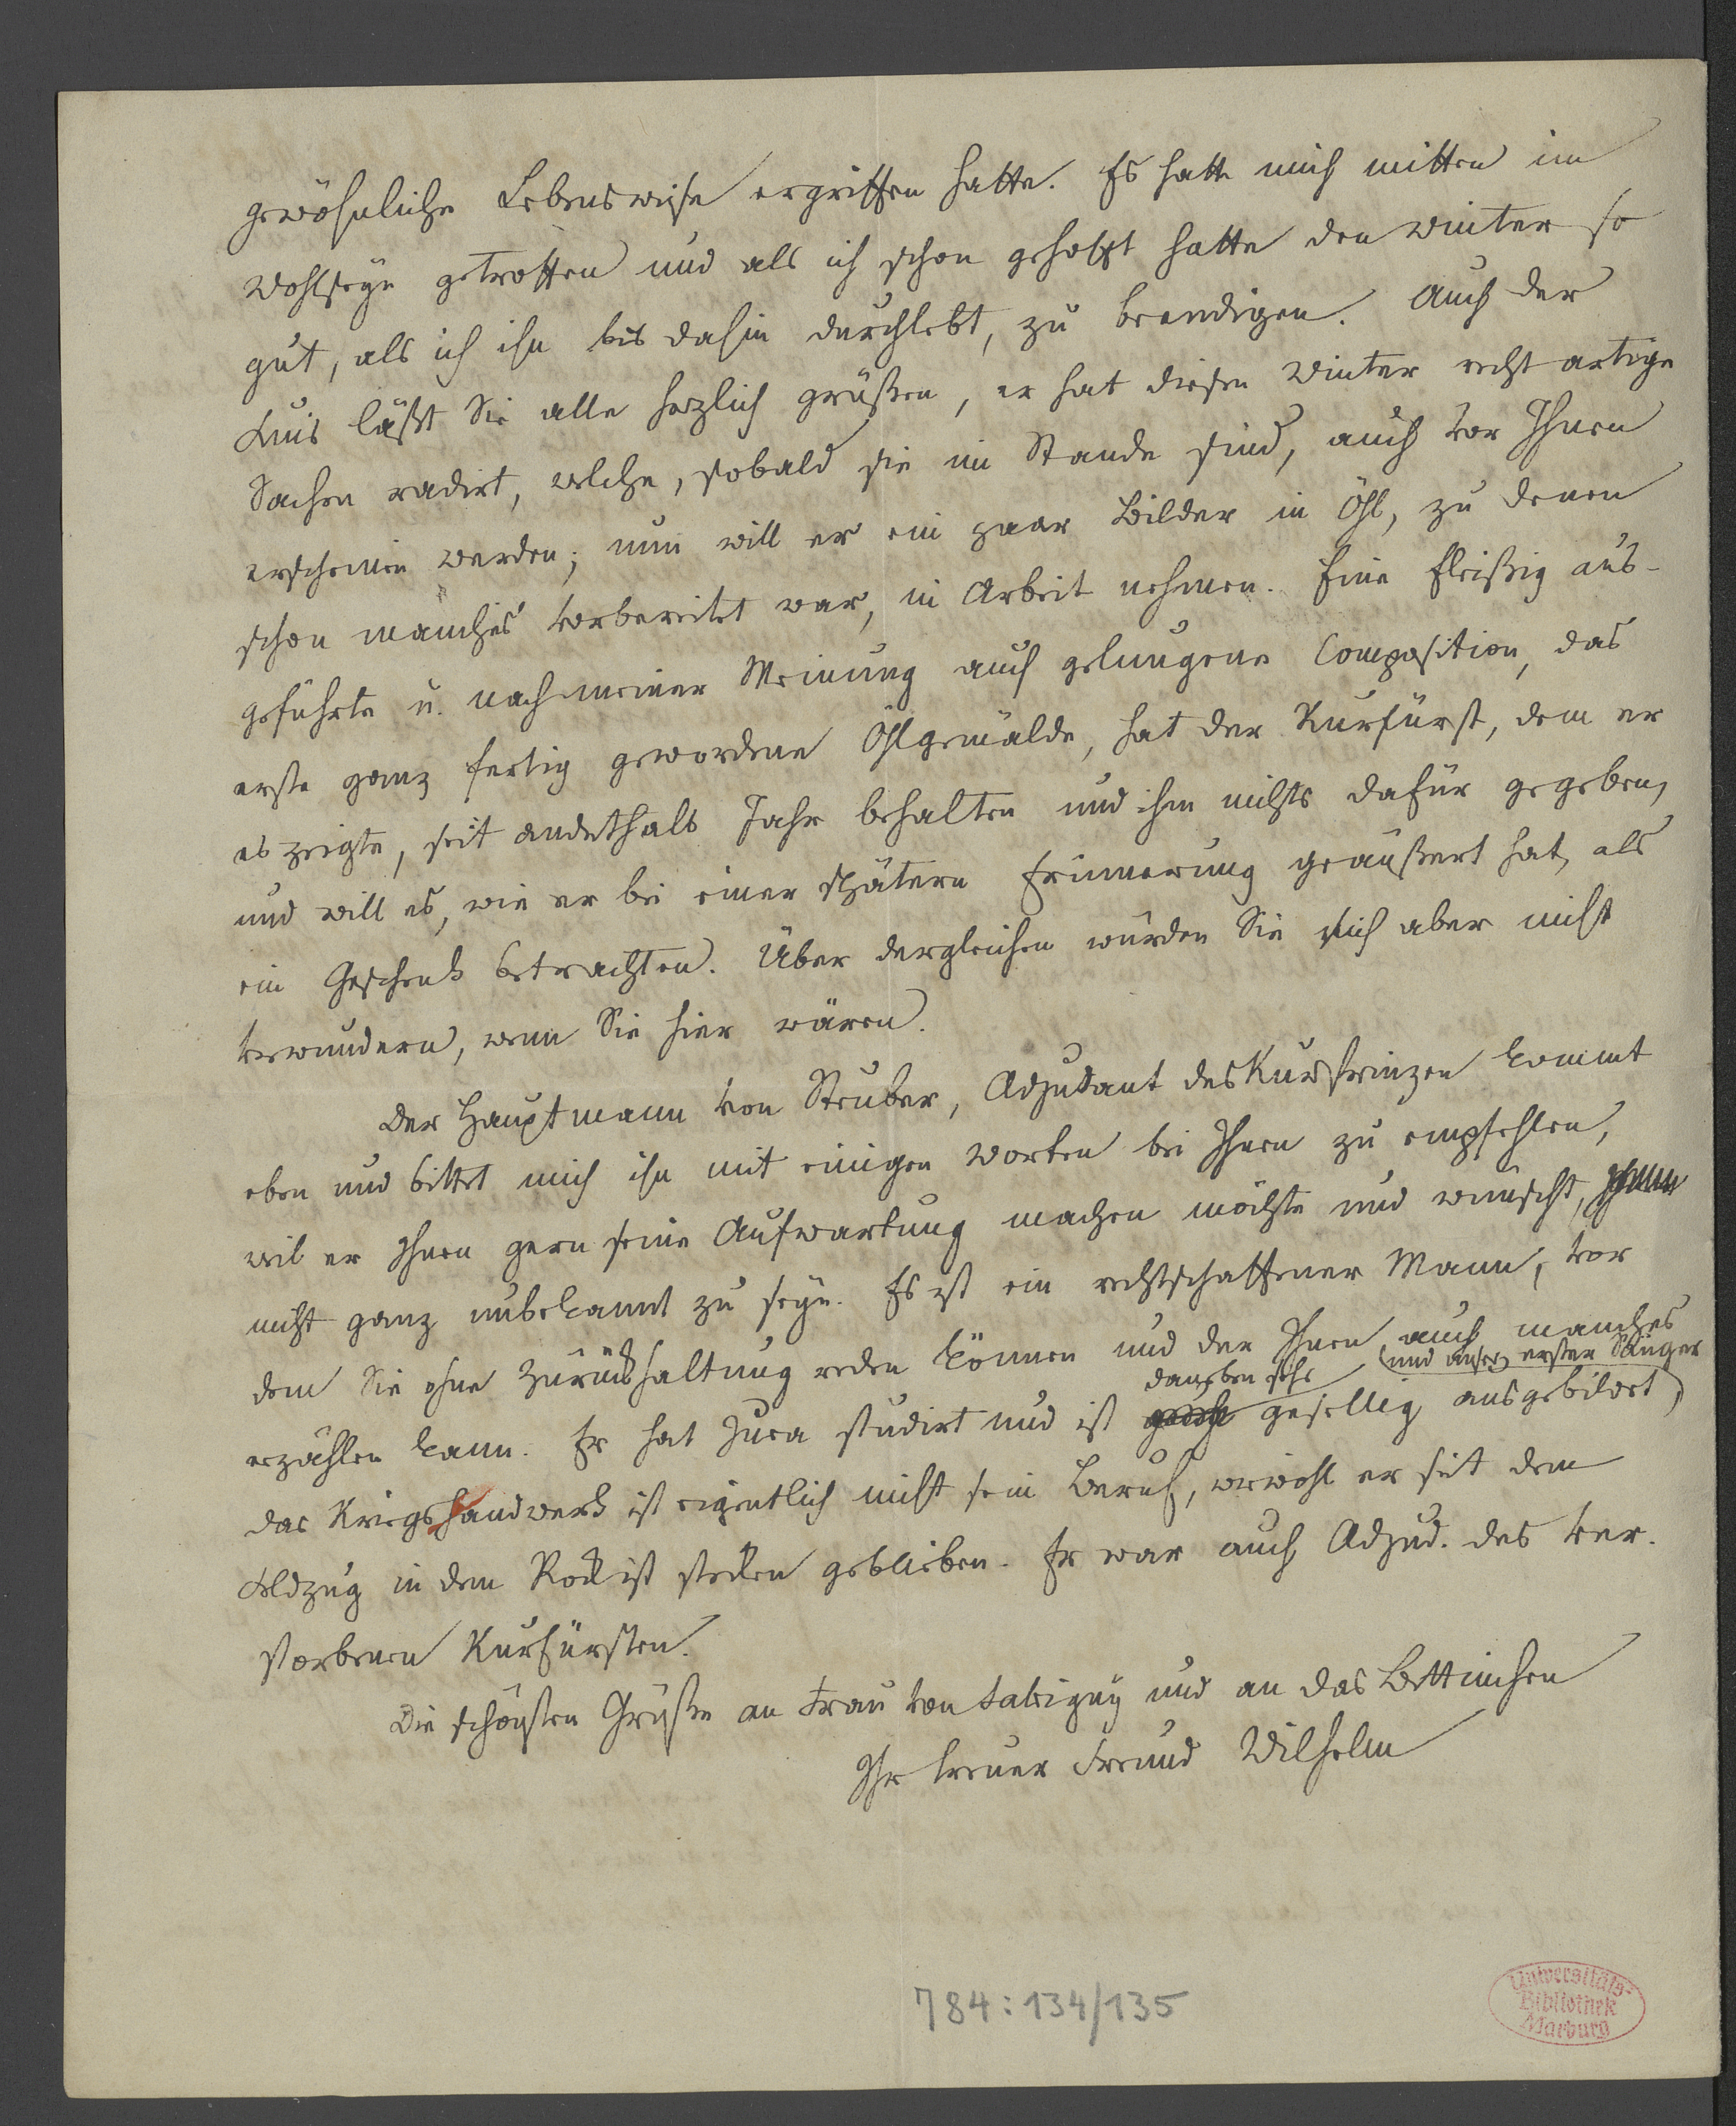 gewöhnliche Lebensweise ergriffen hatte. Es hatte mich mitten im
Wohlseyn getroffen und als ich schon gehofft hatte den Winter so
gut, als ich ihn bis dahin durchlebt, zu beendigen. Auch der
Luis läßt Sie alle herzlich grüßen, er hat diesen Winter recht artige
Sachen radirt, welche, sobald sie im Stande sind, auch vor Ihnen
erscheinen werden; nun will er ein paar Bilder in Öhl, zu denen
schon manches vorbereitet war, in Arbeit nehmen. Eine fleißig aus-
geführte u. nach meiner Meinung auch gelungene Composition, das
erste ganz fertig gewordene Öhlgemälde, hat der Kurfürst, dem er
es zeigte, seit anderthalb Jahr behalten und ihm nichts dafür gegeben,
und will es, wie er bei einer spätern Erinnerung geäußert hat, als
ein Geschenk betrachten. Über dergleichen würden Sie sich aber nicht
verwundern, wenn Sie hier wären.
Der Hauptmann von Steuber, Adjudant des Kurprinzen kommt
eben und bittet mich ihn mit einigen Worten bei Ihnen zu empfehlen,
weil er Ihnen gern seine Aufwartung machen möchte und wünscht, Ihnen
nicht ganz unbekannt zu seyn. Es ist ein rechtschaffener Mann, vor
dem Sie ohne Zurückhaltung reden können und der Ihnen auch manches
erzählen kann. Er hat Jura studirt und ist daneben sehr gesellig ausgebildet,
(und unser erster Sänger)
das Kriegshandwerk ist eigentlich nicht sein Beruf, wiewohl er seit dem
Feldzug in dem Rock ist stecken geblieben. Er war auch Adjud. des ver-
storbenen Kurfürsten.
Die schönsten Grüße an Frau von Savigny und an das Bettinchen
Ihr treuer Freund Wilhelm
784:134/135
Universitäts-
Bibliothek
Marburg